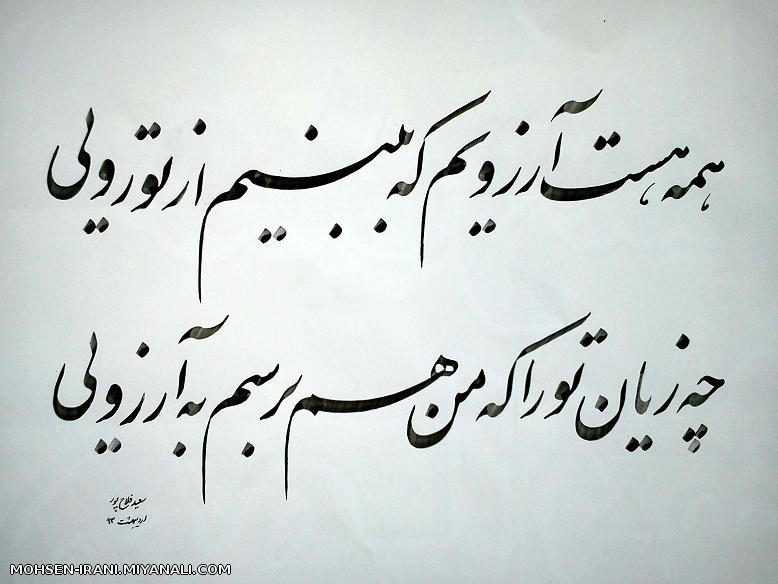 همه هست آرزویم که ببینم از تو رویی
چه زیان تو را که من هم برسم به آرزویی
سعید فلاح پور
اردیبهشت ۹۳
MOHSEN-IRANI.MIYANALI.COM